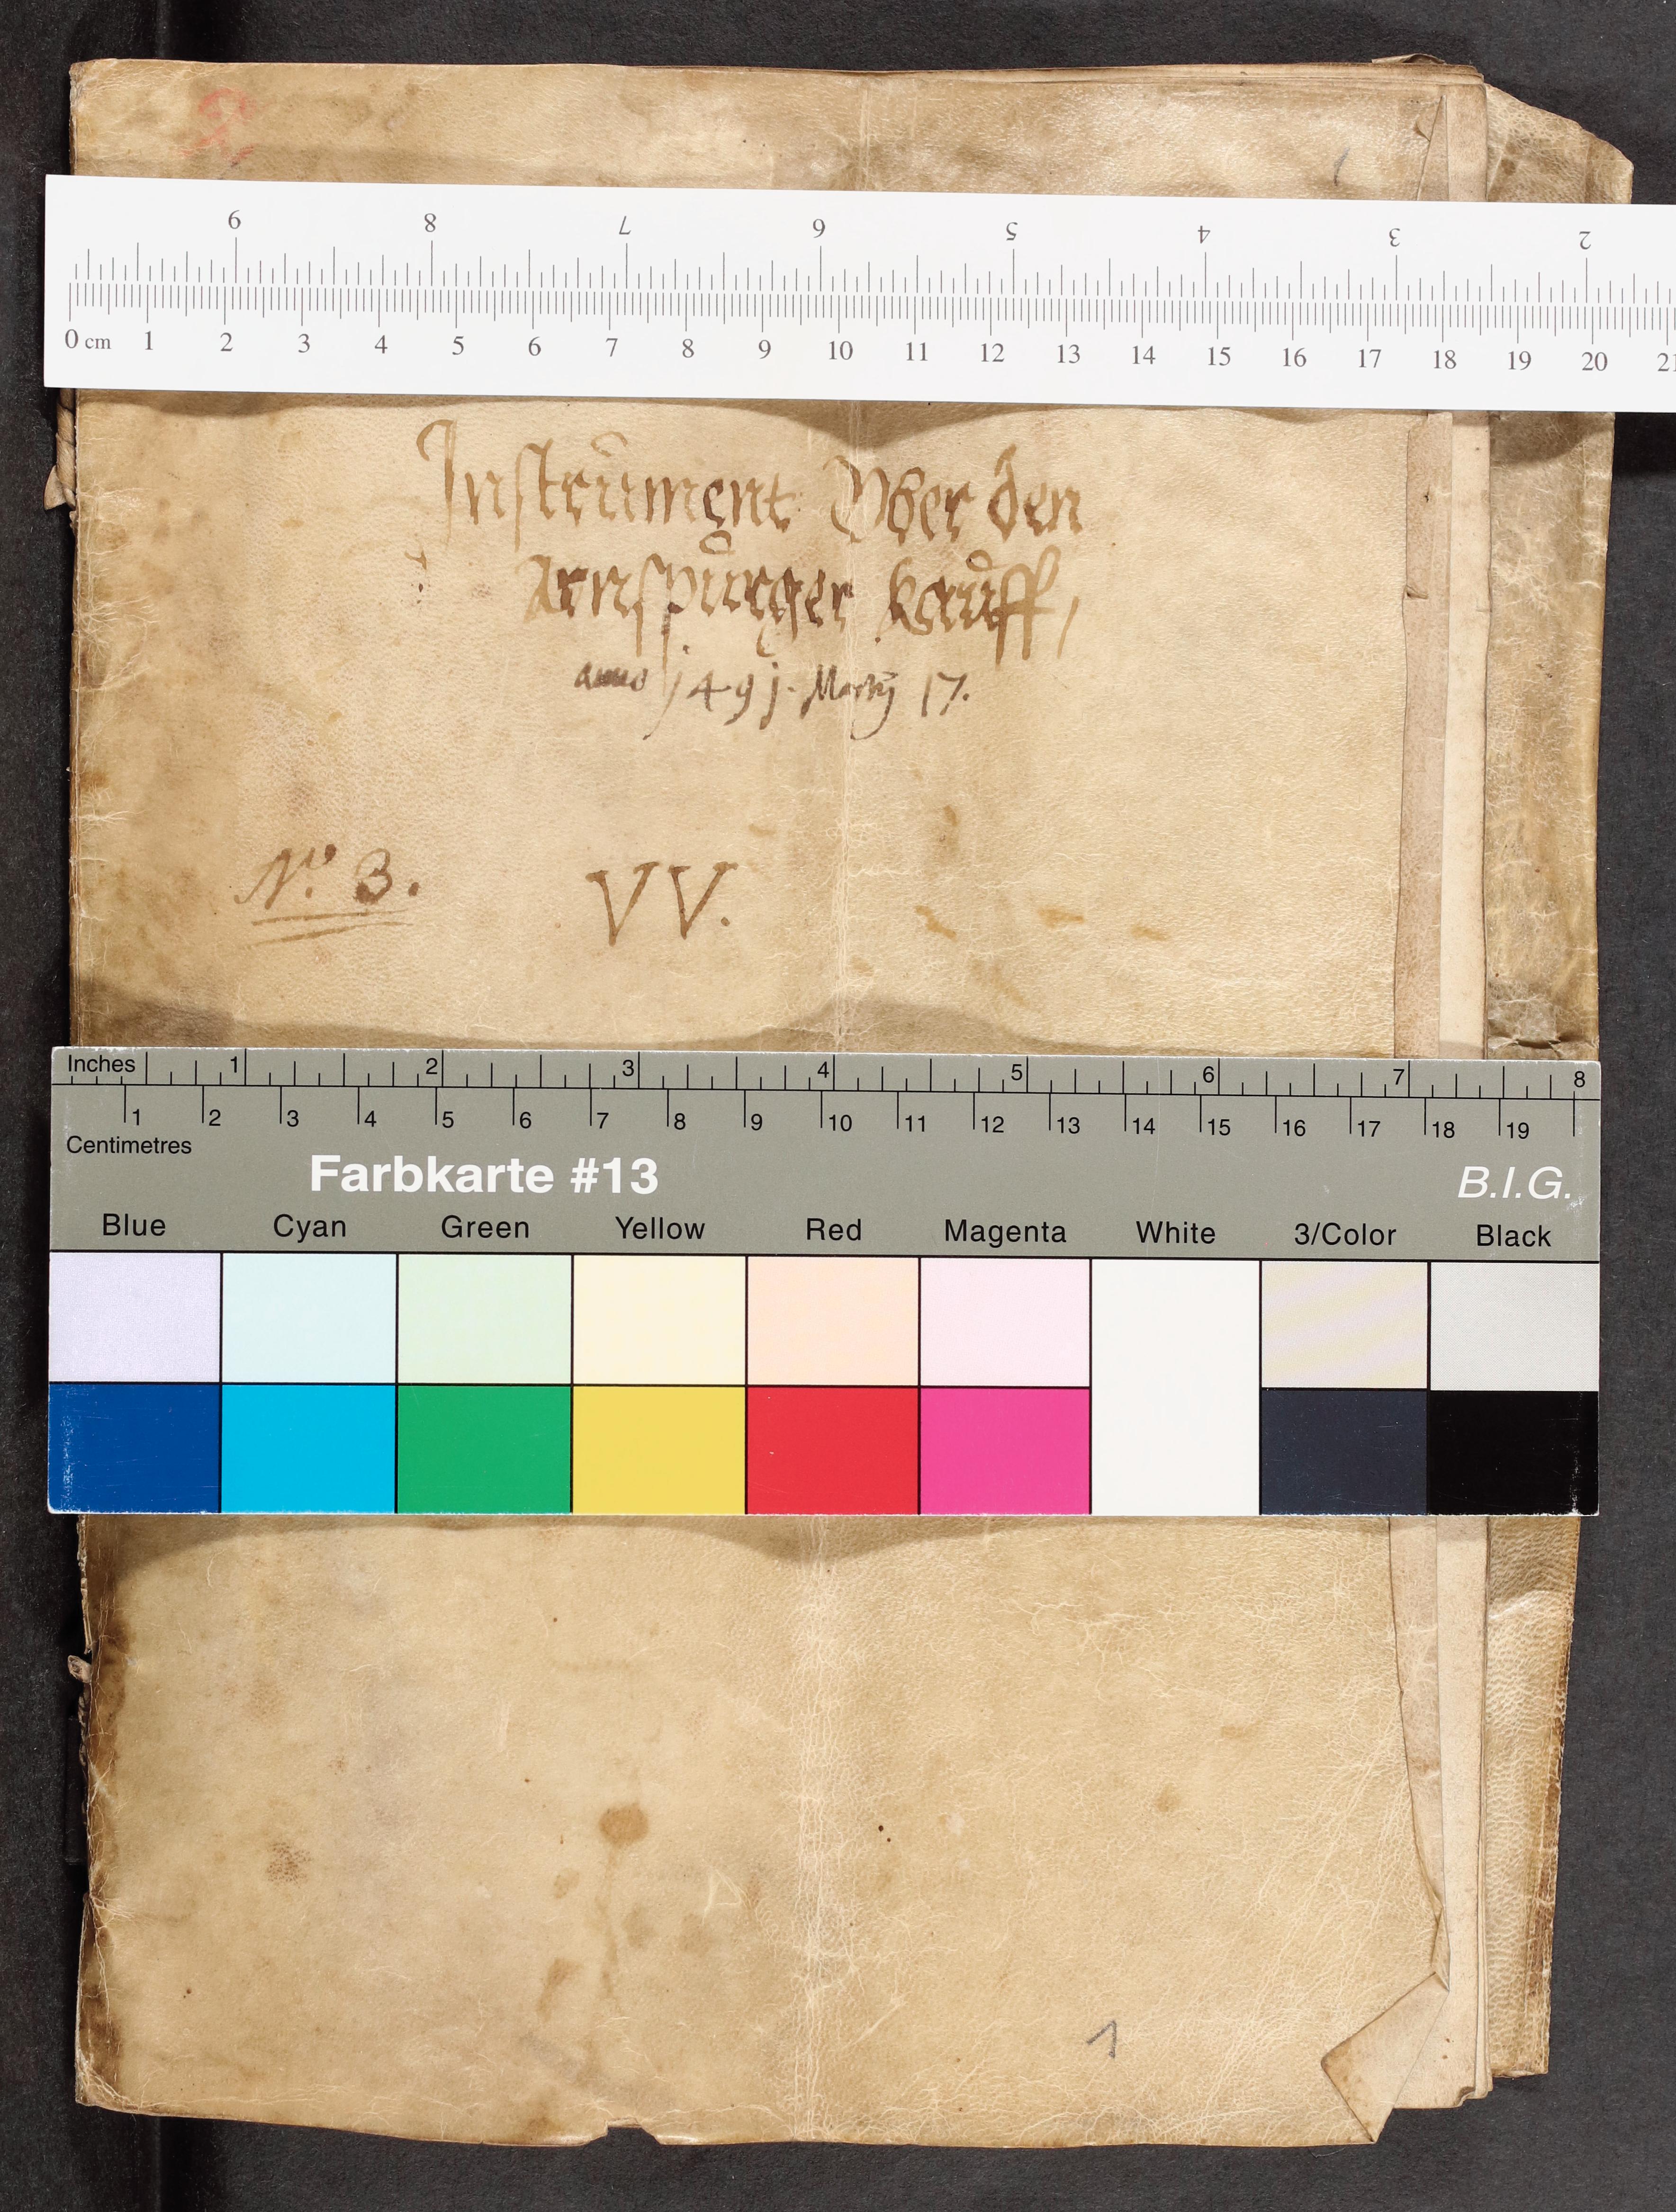 9 8 7 6 5 4 3 2
0 cm 1 2 3 4 5 6 7 8 9 10 11 12 13 14 15 16 17 18 19 20 21
Instrument Vber den
Arnspurger kauff,
anno 1491. Martij 17.
No. 3. VV.
Inches 1 2 3 4 5 6 7 8
1 2 3 4 5 6 7 8 9 10 11 12 13 14 15 16 17 18 19
Centimetres
Farbkarte #13 B.I.G.
Blue Cyan Green Yellow Red Magenta White 3/Color Black
1